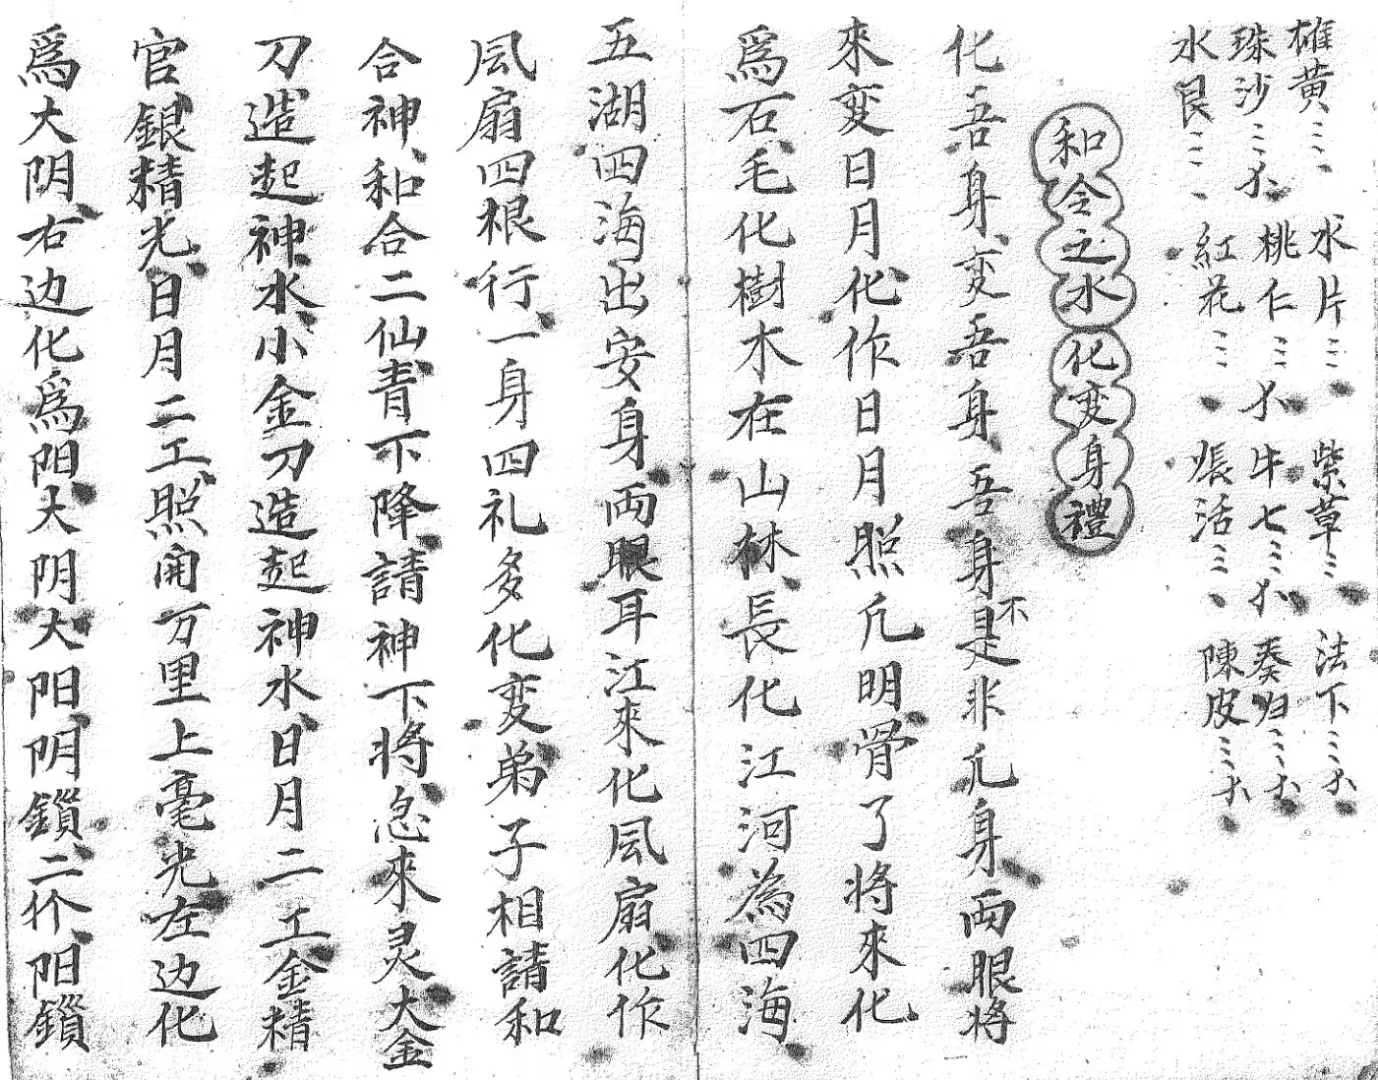 雄黃三、 水片三 紫草三 法下三不
珠沙三不 桃仁三不 牛七三不 葵归三不
水艮三、 紅花三、 張活三、 陳皮三不
和合之水化变身禮
化吾身变吾身吾身是不非凢身両眼将
來变日月化作日月照凢明骨了将來化
爲石毛化樹木在山林長化江河為四海
五湖四海出安身両眼耳江來化風扇化作
風扇四根行一身四礼多化变弟子相請和
合神和合二仙青下降請神下将急來灵大金
刀造起神水小金刀造起神水日月二工金精
官銀精光日月二工照開万里上毫光左边化
爲大阴右边化爲阳大阴大阳阴鎖二个阳鎖